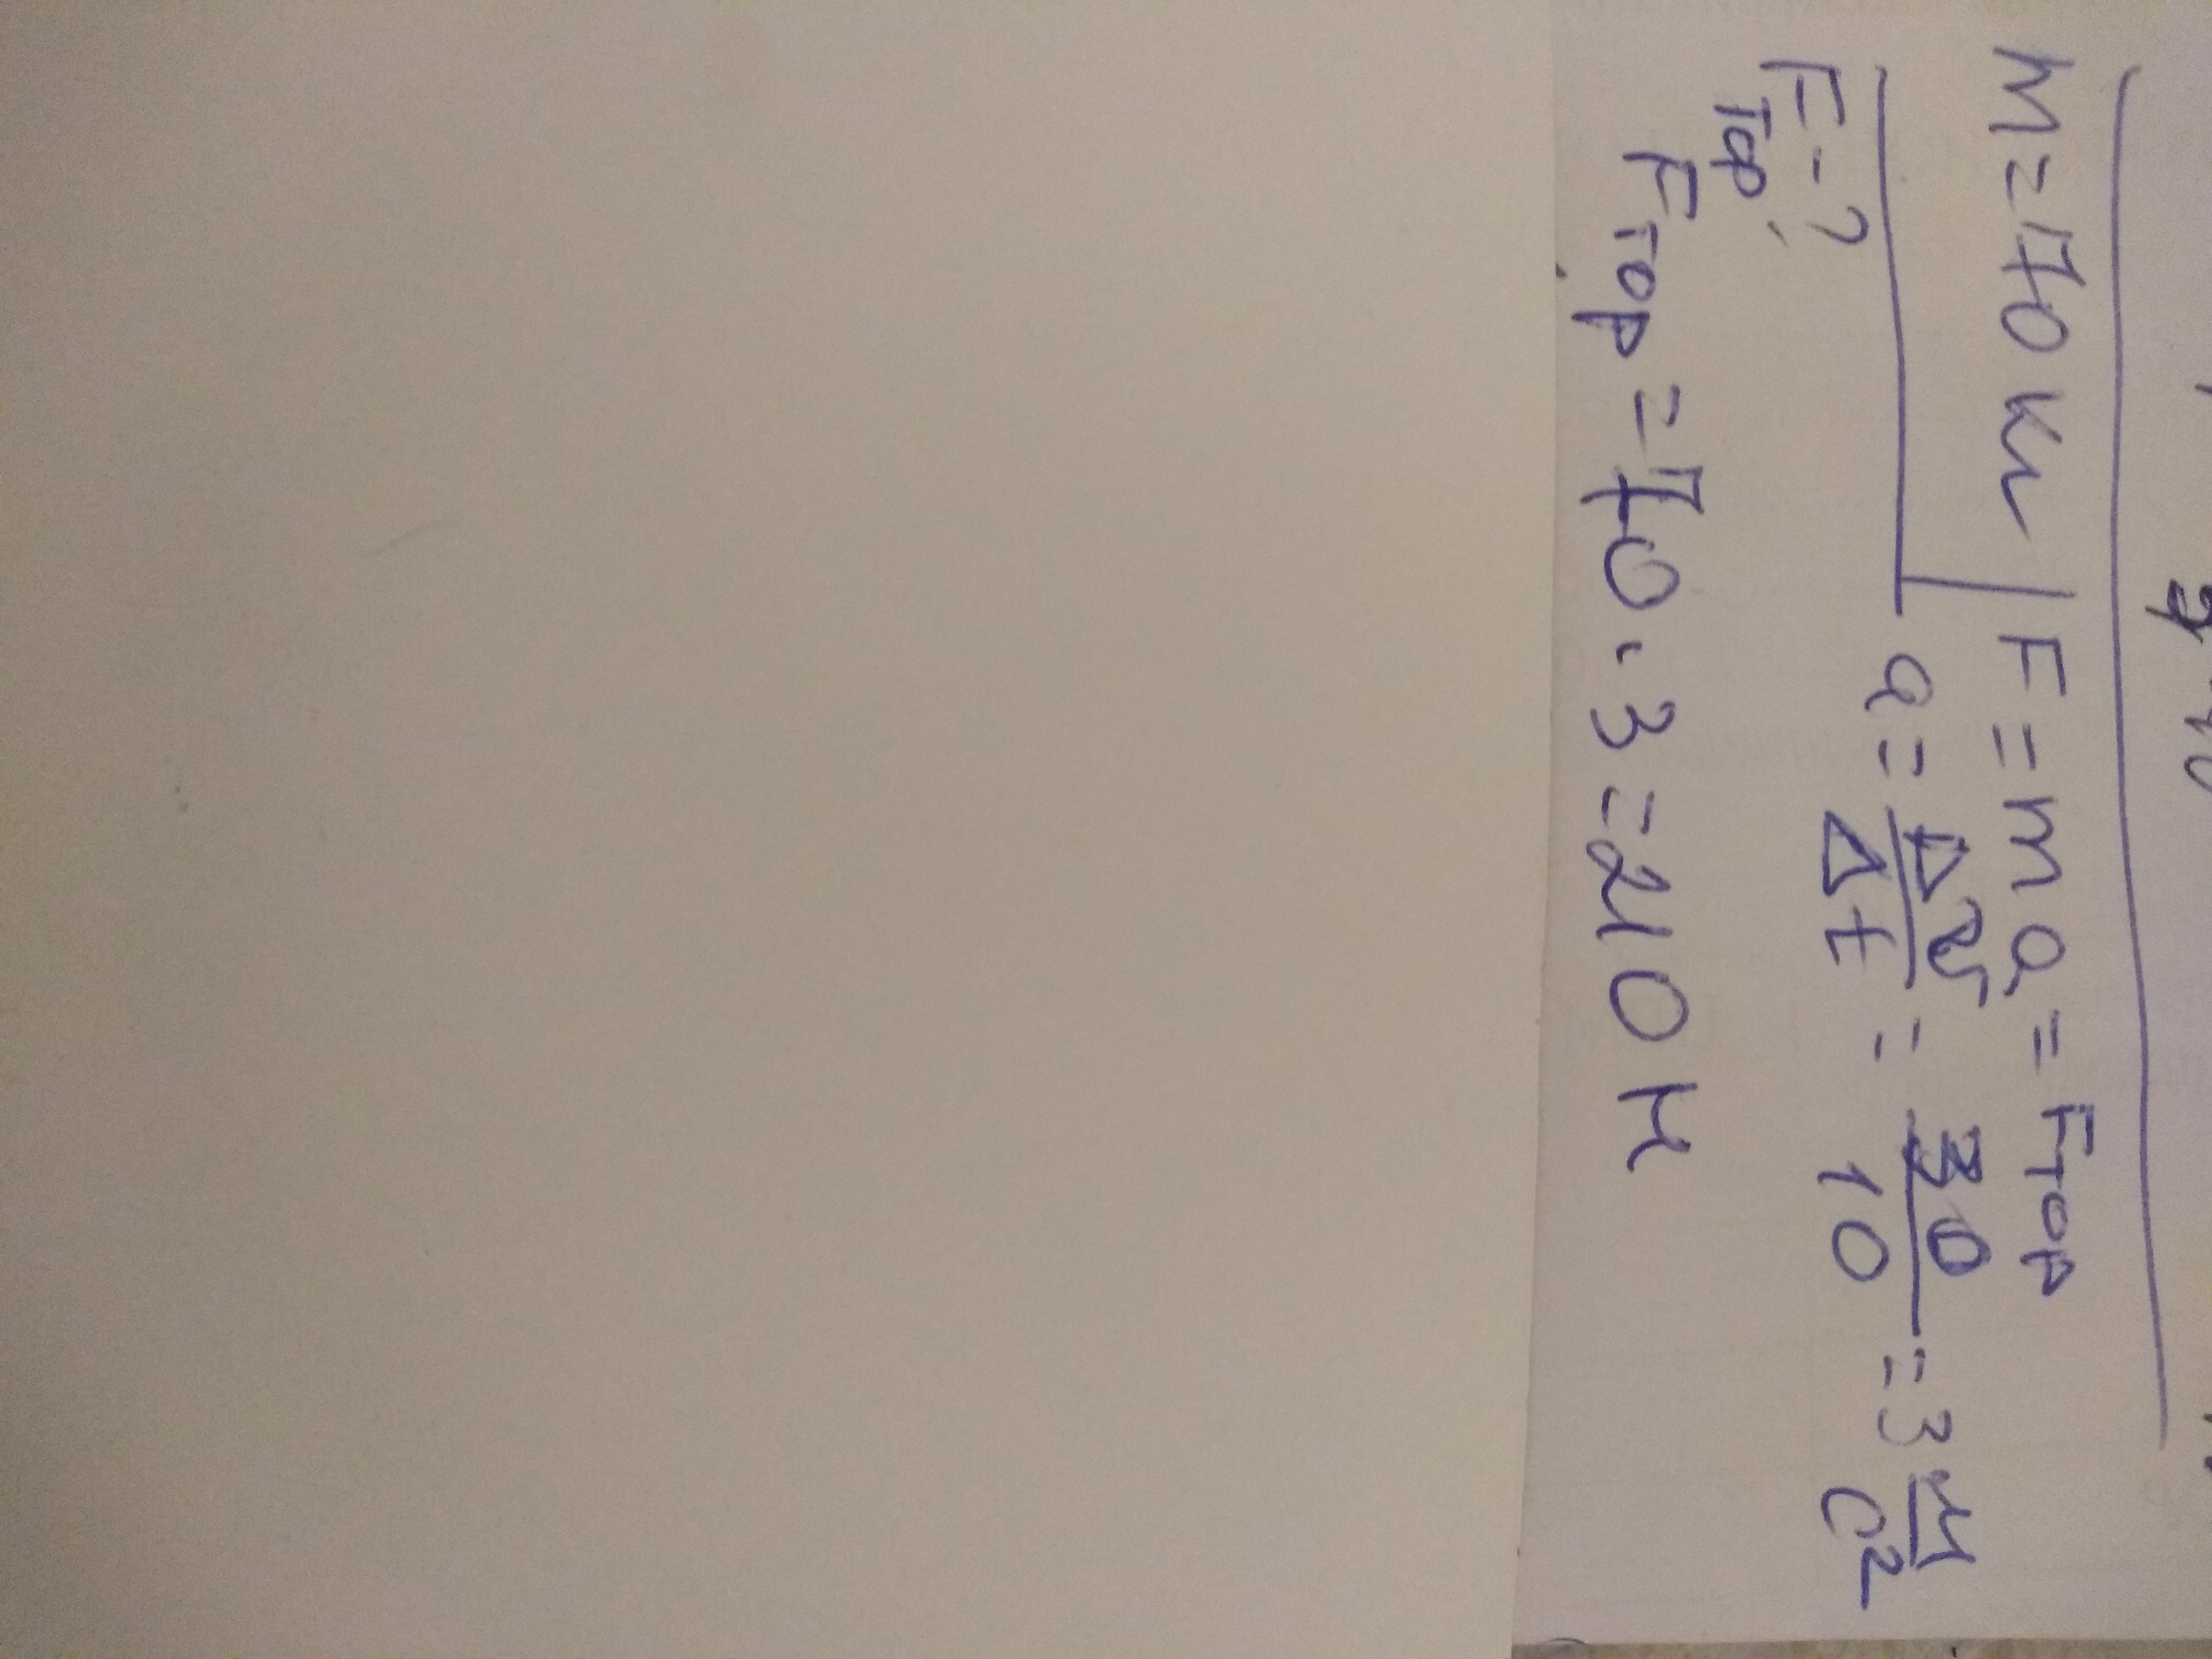 m = 70 кг F = ma = Fтор
a = Δv/Δt = 30/10 = 3 м/с²
Fтор - ?
Fтор = 70 · 3 = 210 Н